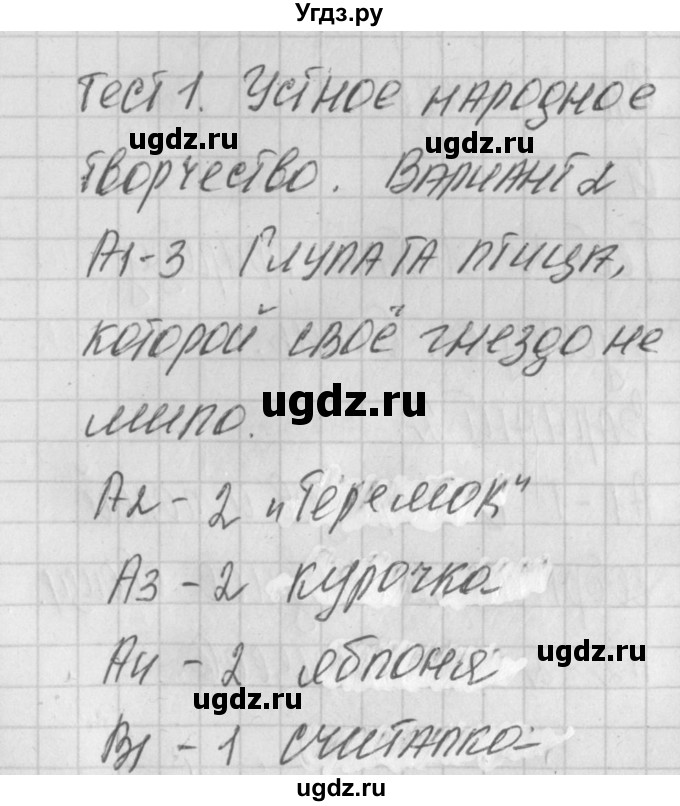 Угдз.ру
Тест 1. Устное народное
ugdz.ru ugdz.ru
творчество. Вариант 2
А1-3 Глупа та птица,
которой своё гнездо не
ugdz.ru
мило.
А2 - 2 "Теремок"
А3 - 2 курочка
ugdz.ru
А4 - 2 яблоня
ugdz.ru
В1 - 1 считалка
ugdz.ru